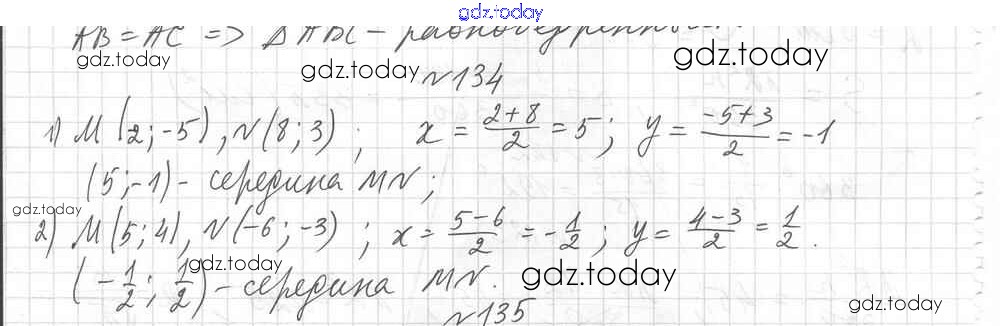 gdz.today
AB = AC => ΔABC - равнобедренный
gdz.today gdz.today gdz.today
№134
1) M(2; -5), N(8; 3); x = (2+8)/2 = 5; y = (-5+3)/2 = -1
(5; -1) - середина MN;
gdz.today gdz.today
2) M(5; 4), N(-6; -3); x = (5-6)/2 = -1/2; y = (4-3)/2 = 1/2.
gdz.today gdz.today
(-1/2; 1/2) - середина MN.
gdz.today
№135